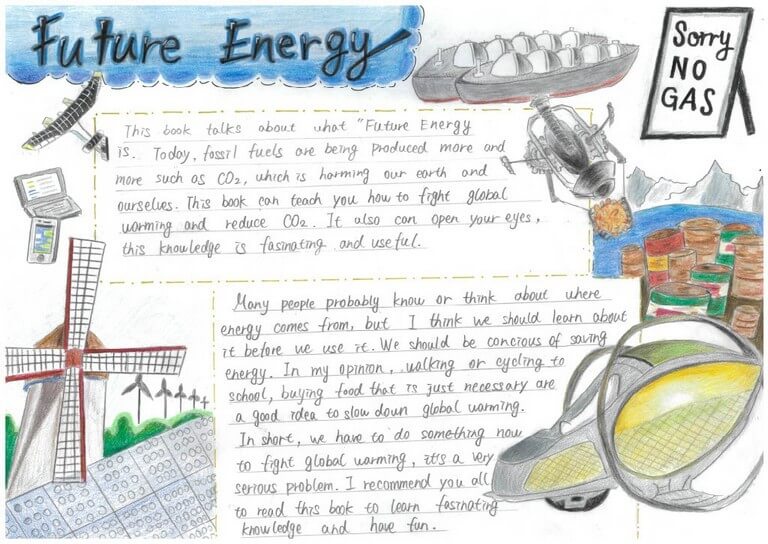 Future Energy
Sorry
NO
GAS
This book talks about what "Future Energy
is. Today, fossil fuels are being produced more and
more such as CO2, which is harming our earth and
ourselves. This book can teach you how to fight global
warming and reduce CO2. It also can open your eyes,
this knowledge is fasinating and useful.
Many people probably know or think about where
energy comes from, but I think we should learn about
it before we use it. We should be concious of saving
energy. In my opinion, walking or cycling to
school, buying food that is just necessary are
a good idea to slow down global warming.
In short, we have to do something now
to fight global warming, it's a very
serious problem. I recommend you all
to read this book to learn fasinating
knowledge and have fun.